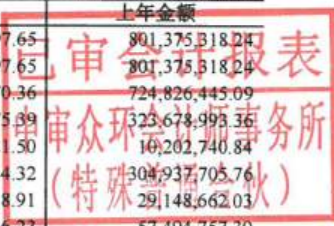 上年金额
7.65 801,375,318.24
7.65 801,375,318.24
0.36 724,826,445.09
5.39 323,678,993.36
1.50 10,202,740.84
4.32 304,937,705.76
8.91 29,148,662.03
已审会计报表
中审众环会计师事务所
(特殊普通合伙)